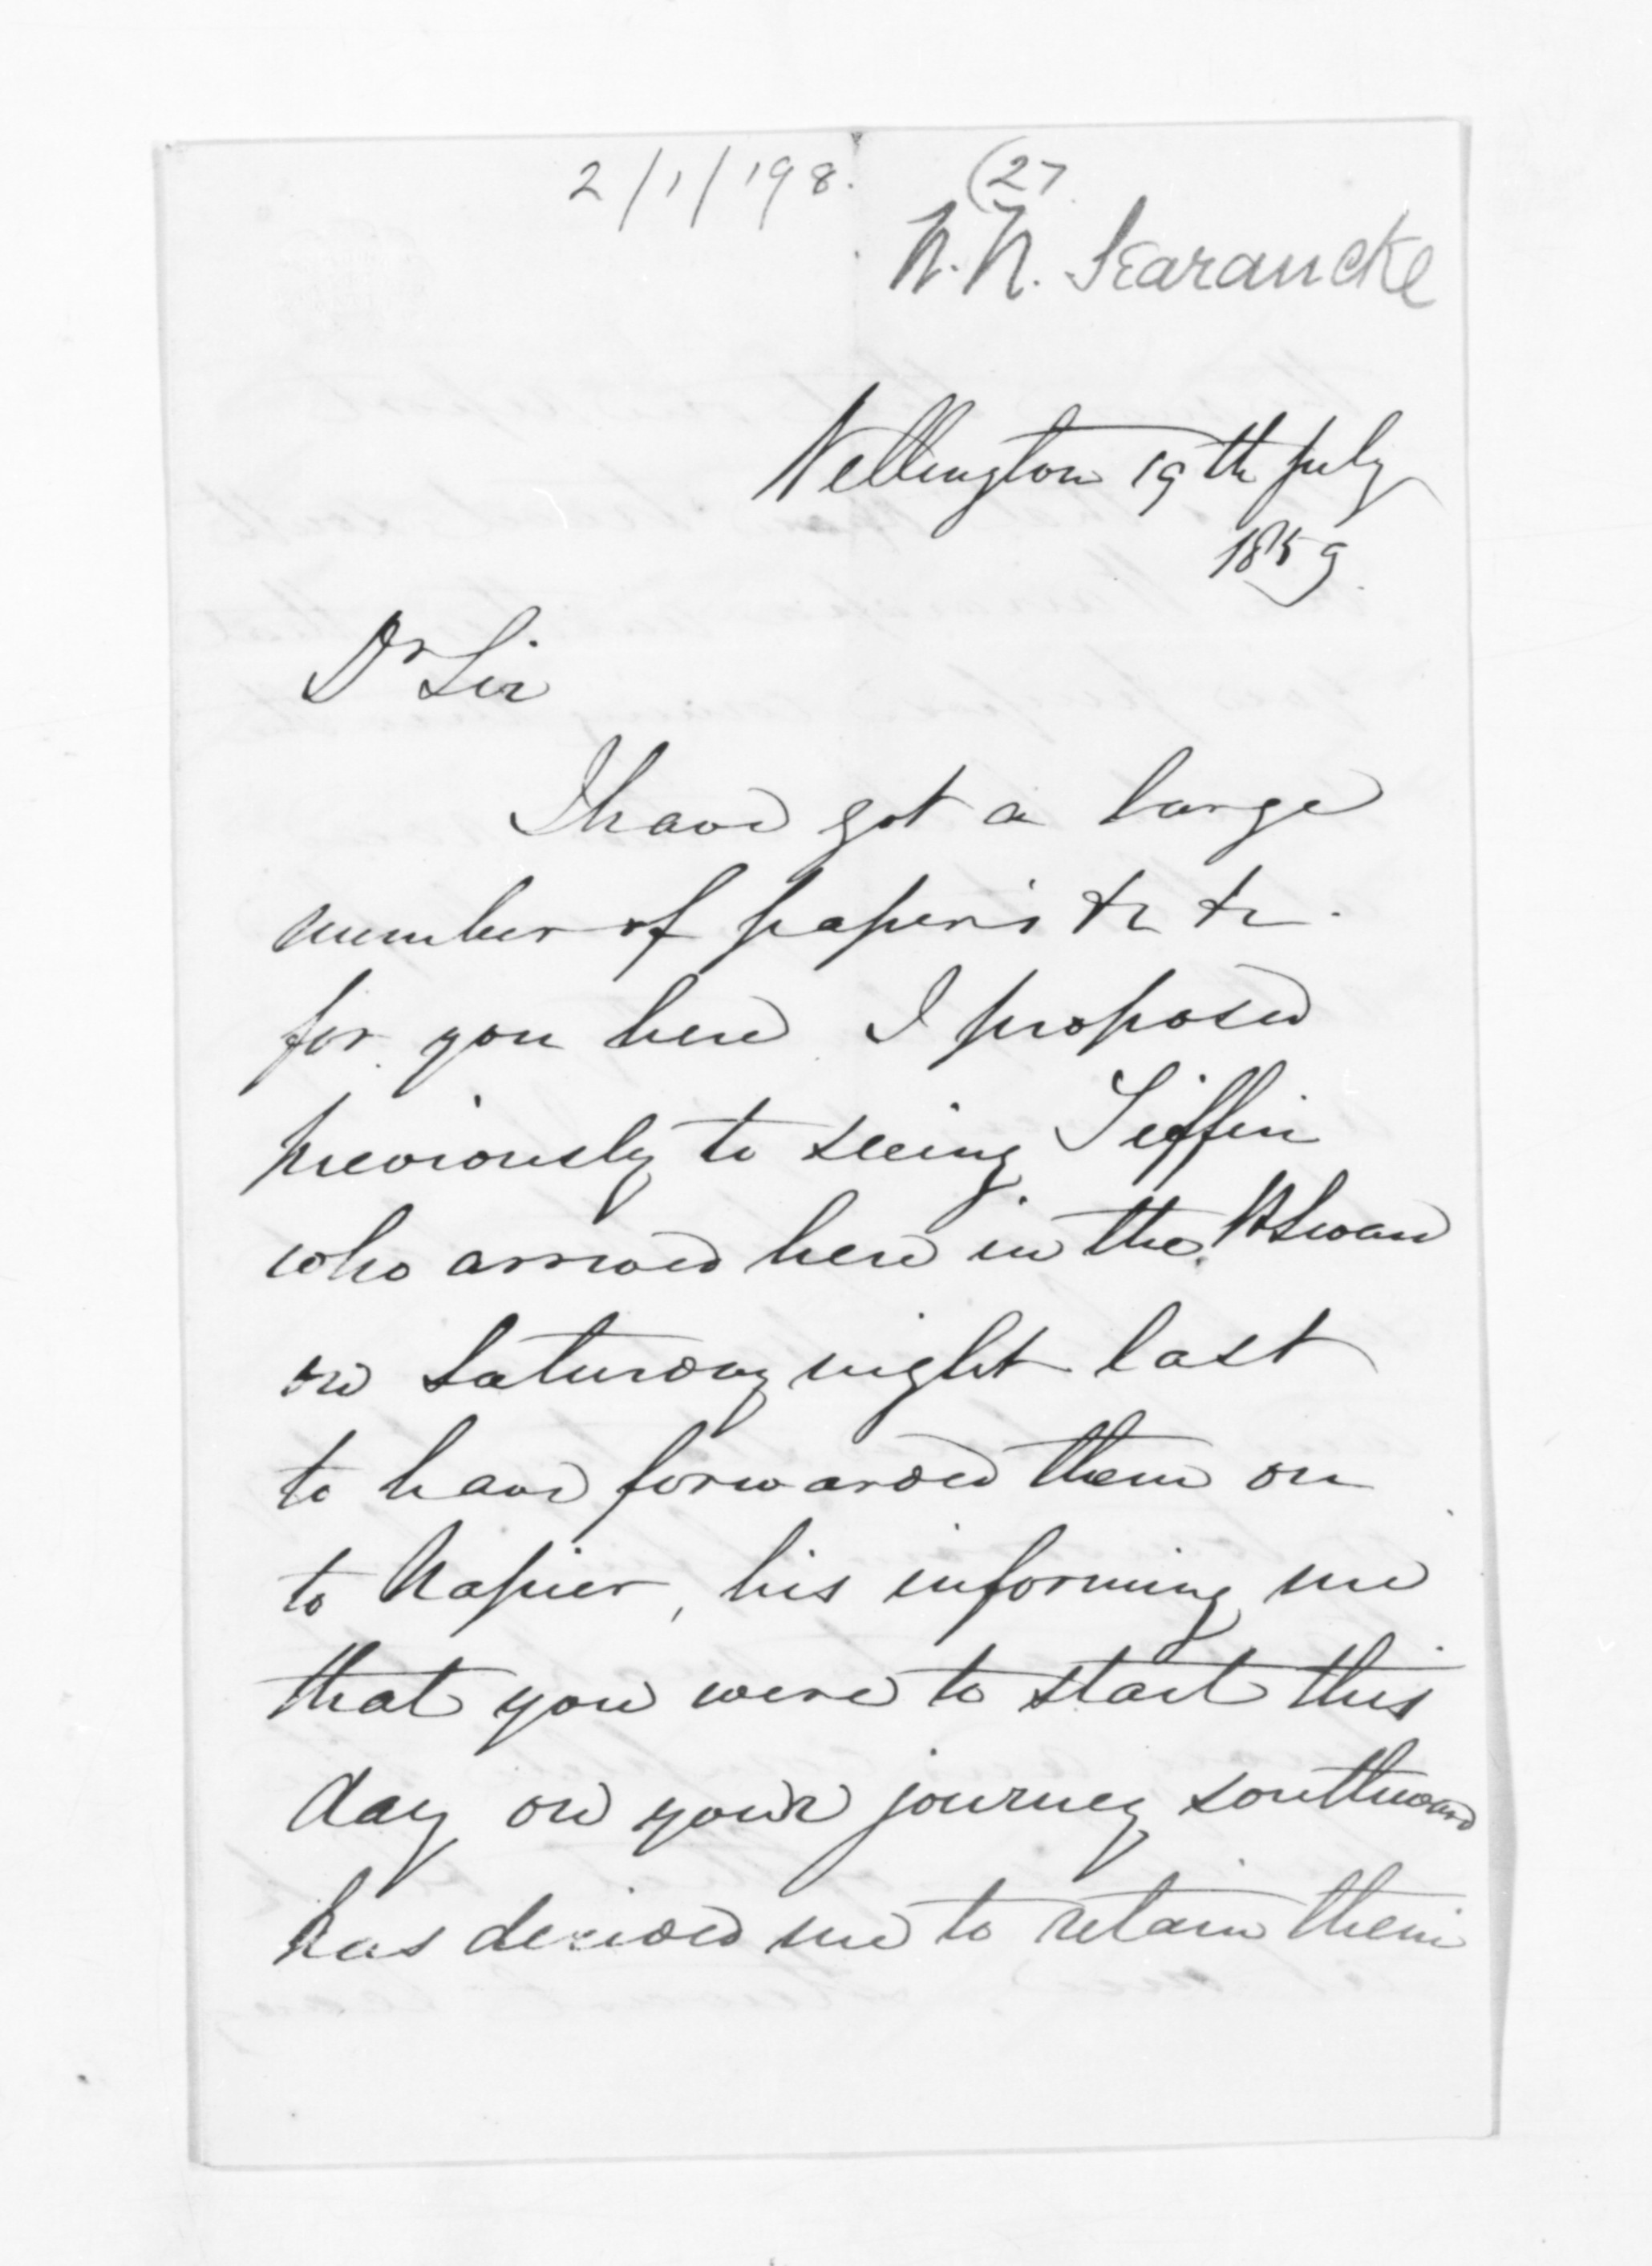 2/1/198.
(27
N. N. Searancke
Wellington 19th July
1859.
Dr Sir
I have got a large
number of papers &c &c.
for you here I proposed
previously to seeing Tiffin
who arrived here in the W Swan
on Saturday night last
to have forwarded them on
to Napier, his informing me
that you were to start this
day on your journey southward
has decided me to retain them